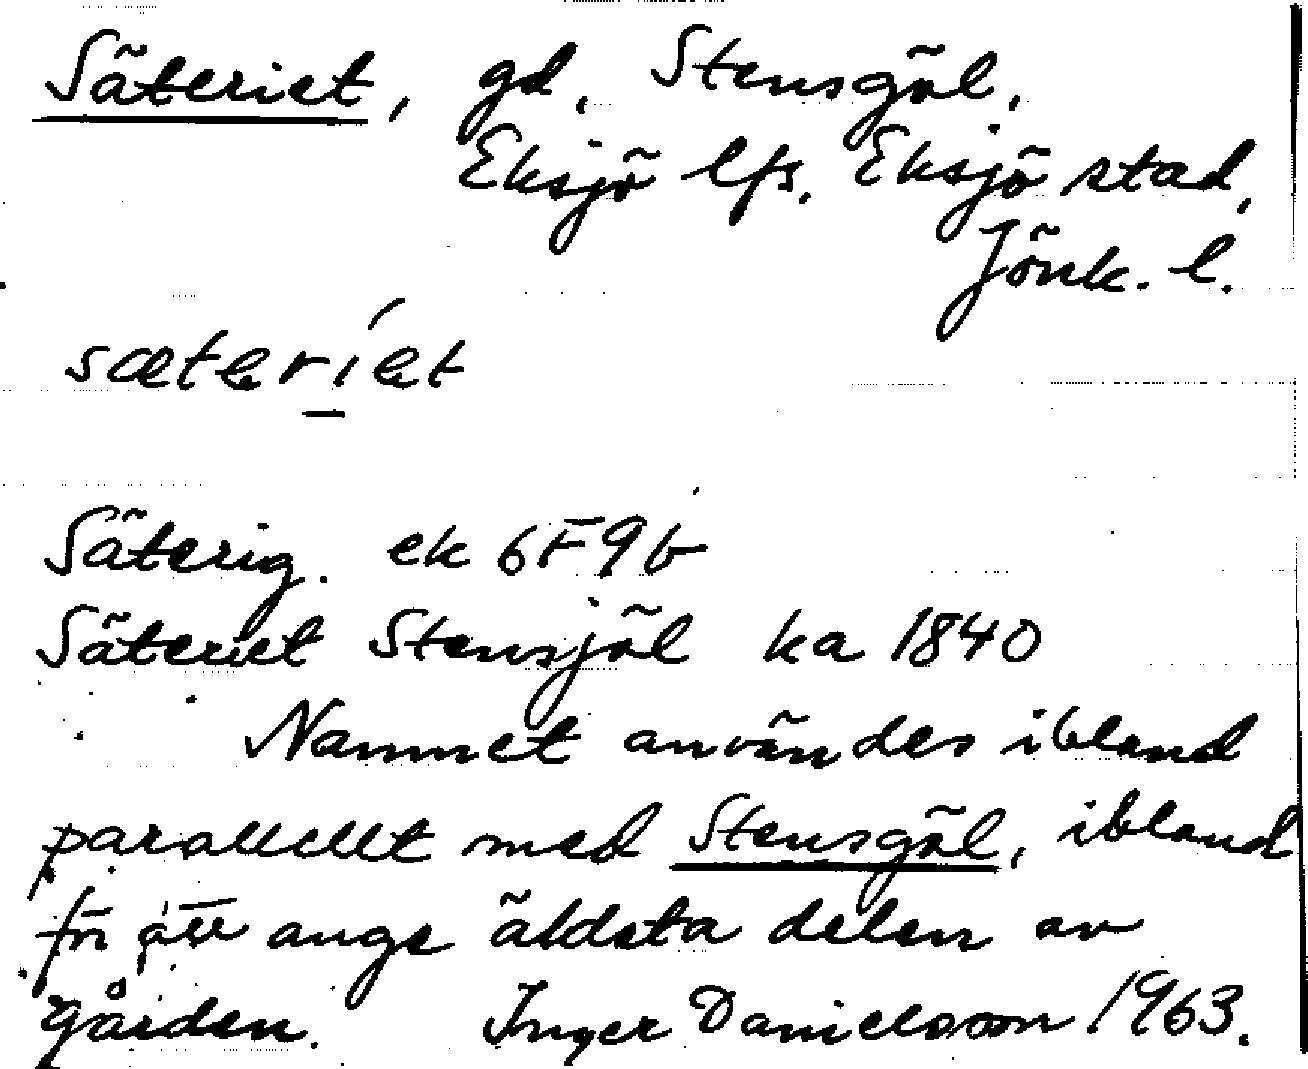 Säteriet, gd, Stensgöl,
Eksjö lfs. Eksjö stad,
Jönk. l.
sæteríet
Säterig. ek 6F9b
Säteriet Stensjöl ka 1840
Namnet användes ibland
parallellt med Stensgöl, ibland
för att ange äldsta delen av
gården. Inger Danielsson 1963.